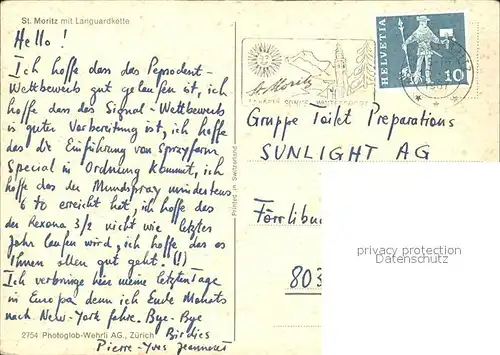 St. Moritz mit Languardkette
Hello!
Ich hoffe dass das Pepsodent-
Wettbewerb gut gelaufen ist, ich
hoffe dass das Signal-Wettbewerb
in guter Vorbereitung ist, ich hoffe
das die Einführung von Sprayform
Special in Ordnung kommt, ich
hoffe das der Mundspray mindestens
6 to erreicht hat, ich hoffe das
der Rexona 3/2 nicht wie letztes
Jahr laufen wird, ich hoffe das es
Ihnen allen gut geht. (!!)
Ich verbringe hier meine letzten Tage
in Europa denn ich Ende Monats
nach New-York fahre. Bye-Bye
Birdies
Pierre-Yves Jeanneret
2754 Photoglob-Wehrli AG., Zürich
Printed in Switzerland
St. Moritz
HELVETIA
10
Gruppe Toilet Preparations
SUNLIGHT AG
Förrlibu
803
privacy protection
Datenschutz